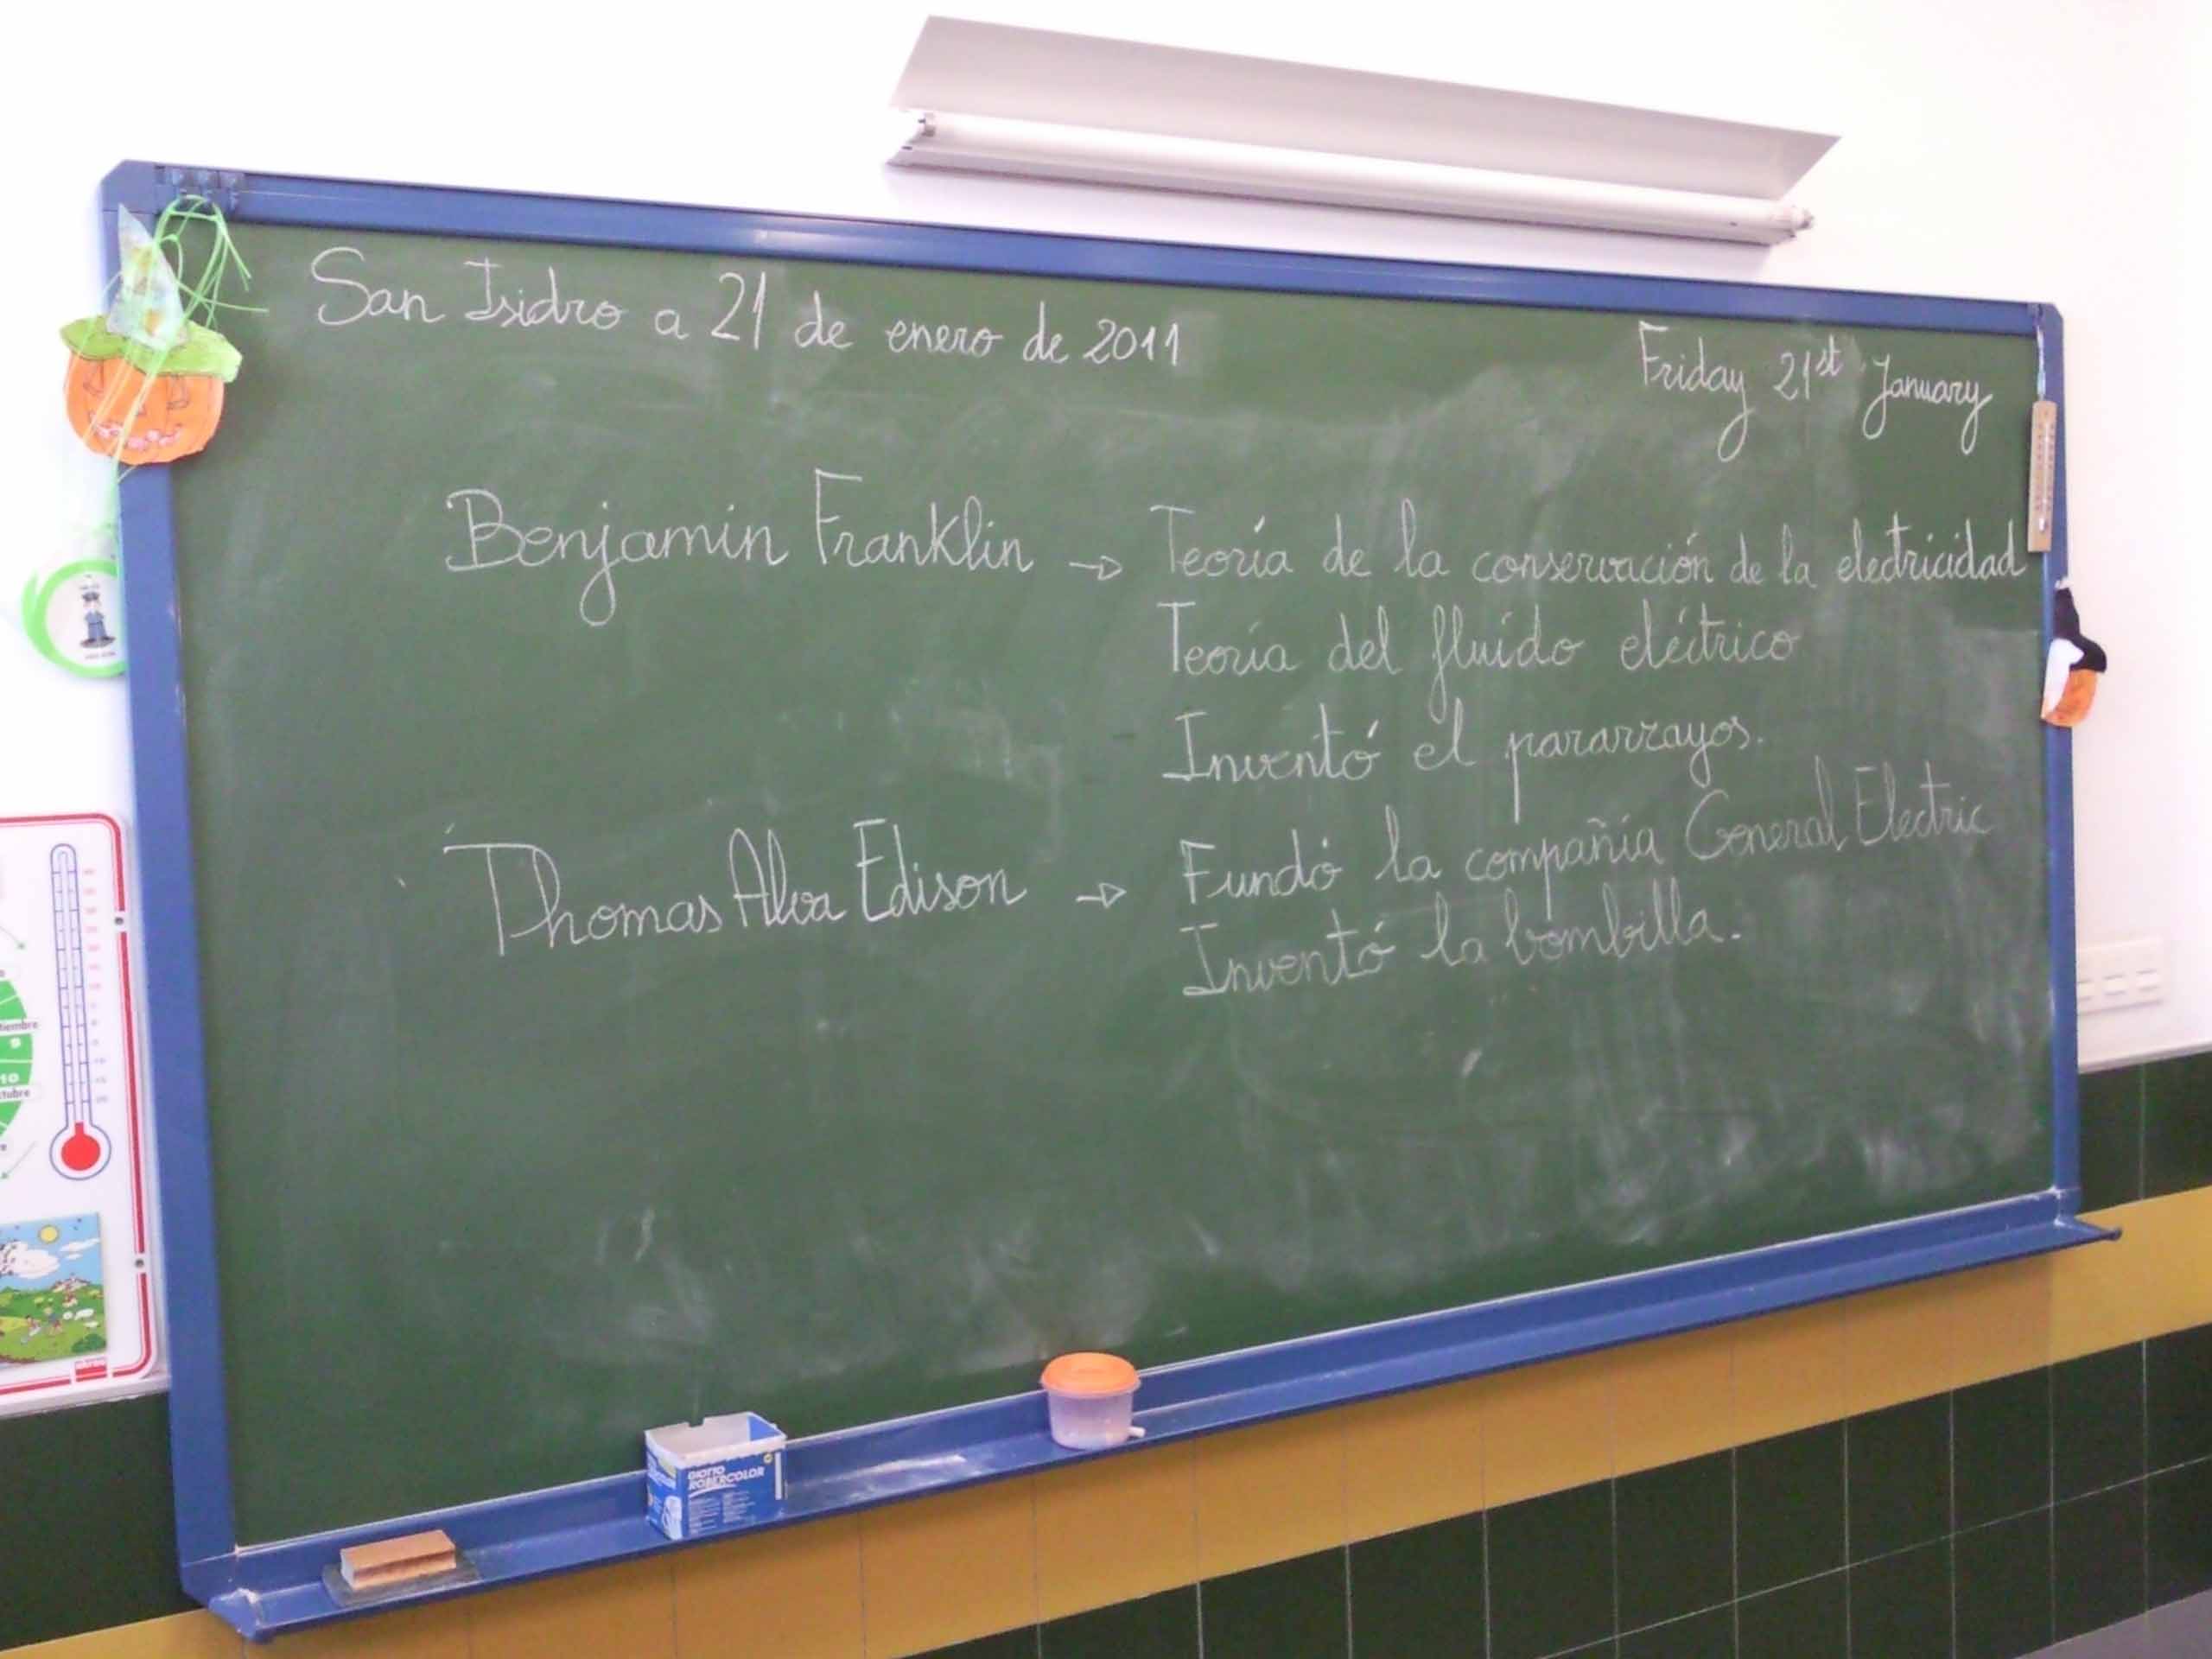 San Isidro a 21 de enero de 2011
Friday 21st January
Benjamin Franklin → Teoría de la conservación de la electricidad
Teoría del fluído eléctrico
Inventó el pararrayos.
Thomas Alva Edison → Fundó la compañía General Electric
Inventó la bombilla.
GIOTTO
ROBERCOLOR